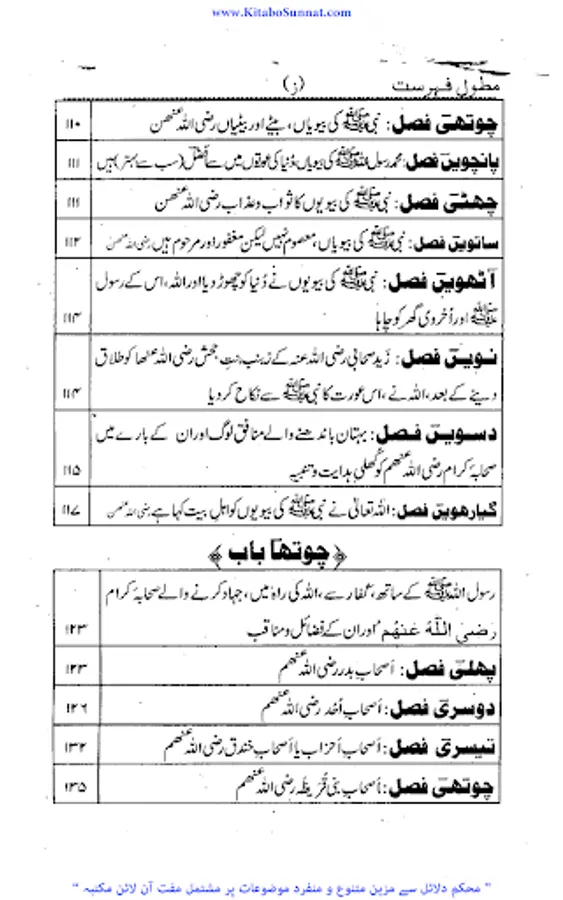 www.KitaboSunnat.com
مطول فہرست (ز)
چوتھی فصل : نبی ﷺ کی بیویاں، بیٹے اور بیٹیاں رضی اللہ عنھن ۱۱۰
پانچویں فصل: محمد رسول اللہ ﷺ کی بیویاں، دُنیا کی عورتوں میں سے أفضل (سب سے بہتر) ہیں ۱۱۱
چھٹی فصل : نبی ﷺ کی بیویوں کا ثواب وعذاب رضی اللہ عنھن ۱۱۱
ساتویں فصل: نبی ﷺ کی بیویاں، معصوم نہیں لیکن مغفور اور مرحوم ہیں رضی اللہ عنھن ۱۱۲
آٹھویں فصل : نبی ﷺ کی بیویوں نے دُنیا کو چھوڑ دیا اور اللہ، اس کے رسول
ﷺ اور اُخروی گھر کو چاہا ۱۱۳
نویں فصل : زید صحابی رضی اللہ عنہ کے زینب بنتِ جحش رضی اللہ عنھا کو طلاق
دینے کے بعد، اللہ نے، اس عورت کا نبی ﷺ سے نکاح کر دیا ۱۱۴
دسویں فصل : بہتان باندھنے والے منافق لوگ اور ان کے بارے میں
صحابۂ کرام رضی اللہ عنھم کو کھلی ہدایت و تنبیہ ۱۱۵
گیارھویں فصل : اللہ تعالیٰ نے نبی ﷺ کی بیویوں کو اہلِ بیت کہا ہے رضی اللہ عنھن ۱۱۷
﴿ چوتھا باب ﴾
رسول اللہ ﷺ کے ساتھ، کفار سے، اللہ کی راہ میں، جہاد کرنے والے صحابۂ کرام
رَضِیَ اللَّهُ عَنْهُم اور ان کے فضائل و مناقب ۱۲۳
پھلی فصل : اَصحابِ بدر رضی اللہ عنھم ۱۲۳
دوسری فصل : اَصحابِ اُحد رضی اللہ عنھم ۱۲۶
تیسری فصل : اَصحابِ اَحزاب یا اَصحابِ خندق رضی اللہ عنھم ۱۳۲
چوتھی فصل : اَصحابِ بنی قُریظہ رضی اللہ عنھم ۱۳۵
" محکم دلائل سے مزین متنوع و منفرد موضوعات پر مشتمل مفت آن لائن مکتبہ "